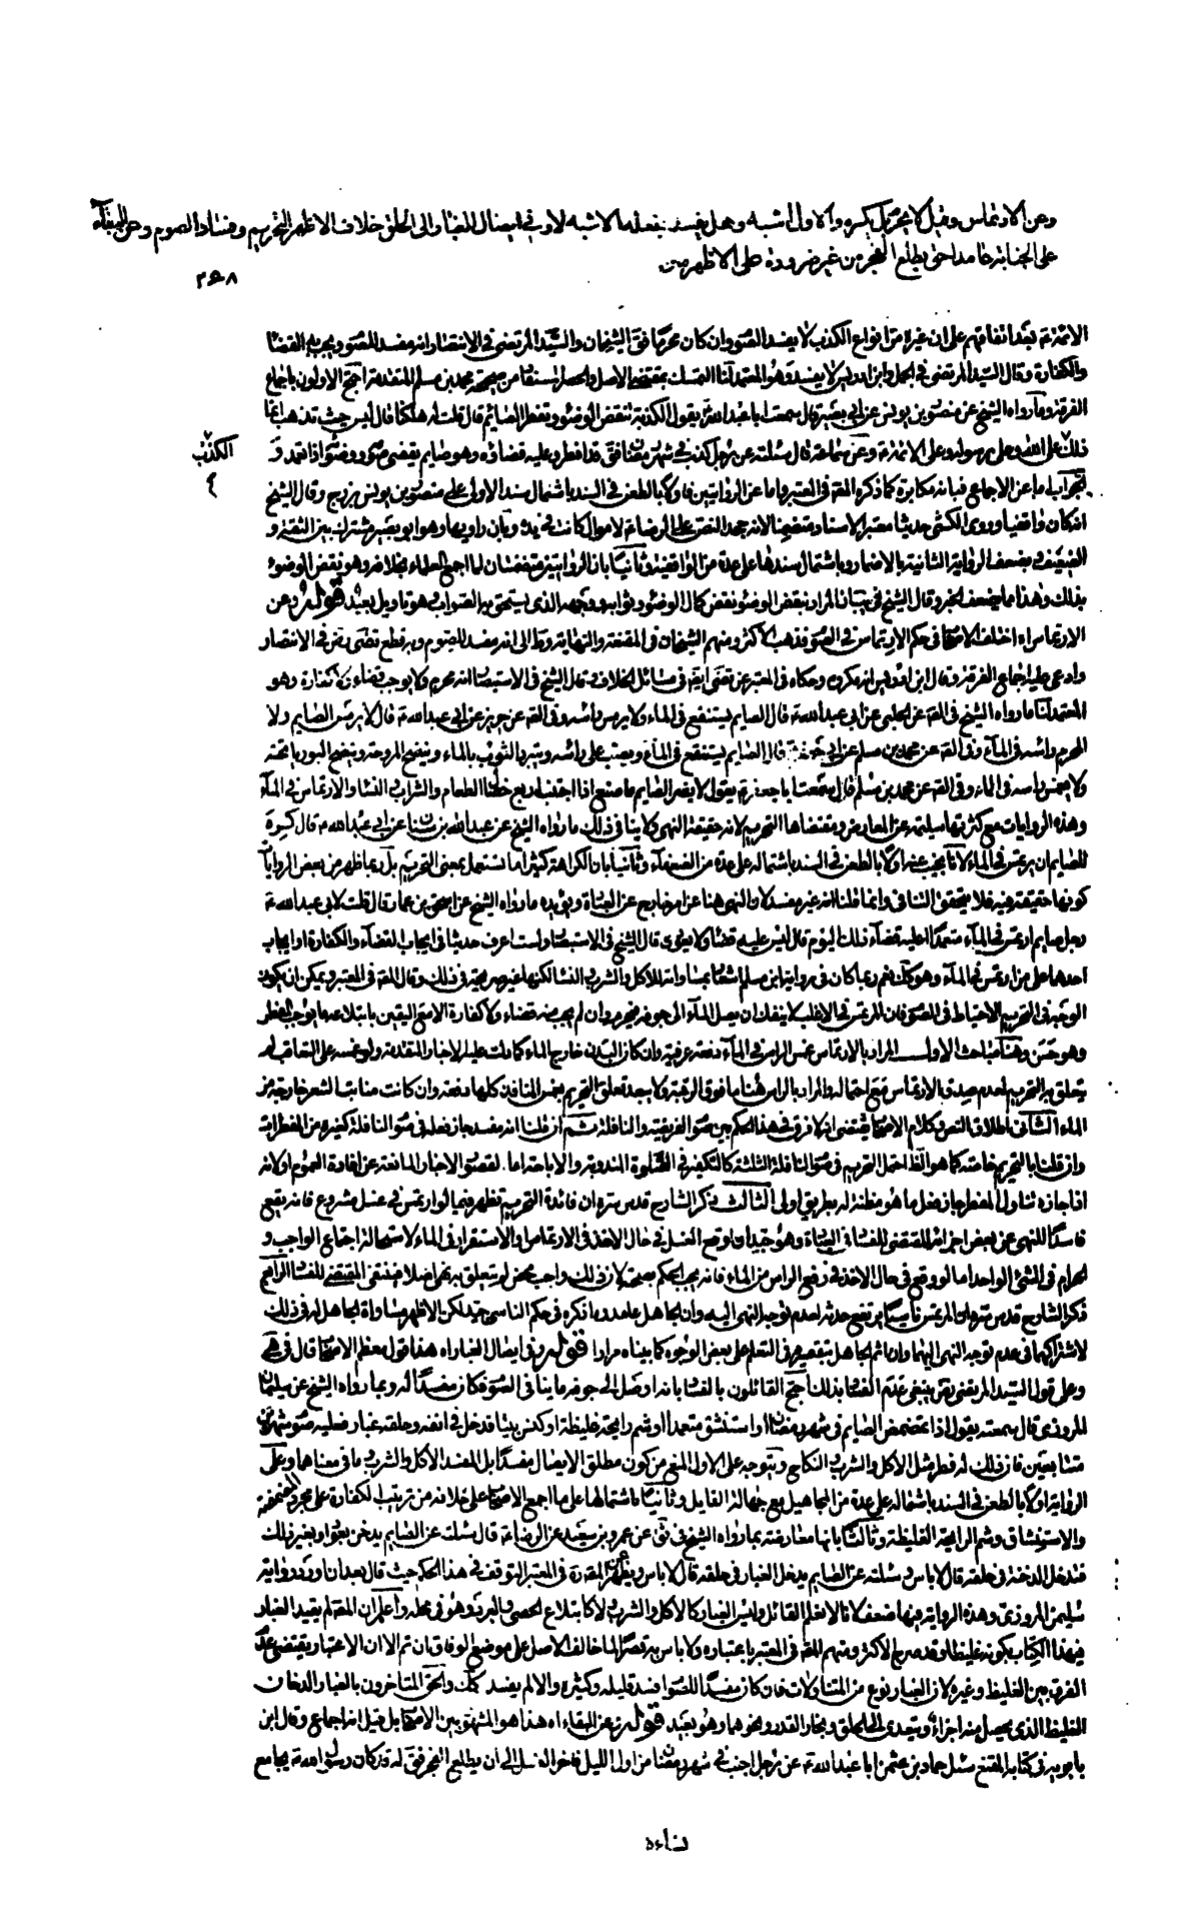 وعن الارتماس وقيل لا يحرم بل يكره والاول اشبه وهل يفسد بفعله الاشبه لا وفي ايصال الغبار الى الحلق خلاف الاظهر التحريم وفساد الصوم وعن البقاء
على الجنابة عامدا حتى يطلع الفجر من غير ضرورة على الاظهر
٢٦٨
الائمة ع بعد اتفاقهم على ان غيره من انواع الكذب لا يفسد الصوم وان كان محرما فق الشيخان والسيد المرتضى في الانتصار انه مفسد للصوم ويجب به القضاء
والكفارة وقال السيد المرتضى في الجمل وابن ادريس لا يفسده وهو المعتمد لنا التمسك بمقتضى الاصل والحصر المستفاد من صحيحة محمد بن مسلم المتقدمة احتج الاولون باجماع
الفرقة وما رواه الشيخ عن منصور بن يونس عن ابي بصير قال سمعت ابا عبد الله ع يقول الكذبة تنقض الوضوء وتفطر الصايم قال قلت له هلكنا قال ليس حيث تذهب انما
ذلك على الله وعلى رسوله وعلى الائمة ع وعن سماعة قال سئلته عن رجل كذب في شهر رمضان فق قد افطر وعليه قضاؤه وهو صايم يقضي صومه ووضوءه اذا تعمد و
الكذب
الجواب اما عن الاجماع فبانه مكابرة كما ذكره المص في المعتبر واما عن الروايتين فاولا بالطعن في السند باشتمال سند الاولى على منصور بن يونس بزرج وقال الشيخ
انه كان واقفيا وروى الكشي حديثا معتبر الاسناد متضمنا لانه جحد النص على الرضا ع لاموال كانت في يده وبان راويها وهو ابو بصير مشترك بين الثقة و
الضعيف وبضعف الرواية الثانية بالاضمار وباشتمال سندها على عدة من الواقفية وثانيا بان الروايتين متضمنتان لما اجمع العلماء بخلافه وهو نقض الوضوء
بذلك وهذا ما يضعف الخبر وقال الشيخ في بيان المراد بنقض الوضوء نقض كمال الوضوء وثوابه ووجهه الذي يستحق به الثواب وهو تاويل بعيد قوله وعن
الارتماس اه اختلف الاصحاب في حكم الارتماس في الصوم فذهب الاكثر ومنهم الشيخان في المقنعة والنهاية وط الى انه مفسد للصوم وبه قطع المرتضى رض في الانتصار
وادعى عليه اجماع الفرقة وقال ابن ادريس انه مكروه وحكاه في المعتبر عن المرتضى ايضا في مسائل الخلاف وقال الشيخ في الاستبصار انه محرم ولا يوجب قضاء ولا كفارة وهو
المعتمد لنا ما رواه الشيخ في الصحيح عن الحلبي عن ابي عبد الله ع قال الصايم يستنقع في الماء ولا يرمس راسه وفي الصحيح عن حريز عن ابي عبد الله ع قال لا يرتمس الصايم ولا
المحرم راسه في الماء وفي الصحيح عن محمد بن مسلم عن ابي جعفر ع قال الصايم يستنقع في الماء ويصب على راسه ويتبرد بالثوب وينضح بالماء وينضح المروحة وينضح البوريا تحته
ولا يغمس راسه في الماء وفي الصحيح عن محمد بن مسلم قال سمعت ابا جعفر ع يقول لا يضر الصايم ما صنع اذا اجتنب اربع خصال الطعام والشراب والنساء والارتماس في الماء
وهذه الروايات مع كثرتها سليمة عن المعارض ومقتضاها التحريم لانه حقيقة النهي ولا ينافي ذلك ما رواه الشيخ عن عبد الله بن سنان عن ابي عبد الله ع قال يكره
للصايم ان يرتمس في الماء لانا نجيب عنه اولا بالطعن في السند باشتماله على عدة من الضعفاء وثانيا بان الكراهة كثيرا ما تستعمل بمعنى التحريم بل ربما ظهر من بعض الروايات
كونها حقيقة فيه فلا يتحقق التنافي وانما قلنا انه غير مفسد لان النهي هنا عن امر خارج عن العبادة ويؤيده ما رواه الشيخ عن اسحق بن عمار قال قلت لابي عبد الله ع
رجل صايم ارتمس في الماء متعمدا اعليه قضاء ذلك اليوم قال ليس عليه قضاء ولا يعود قال الشيخ في الاستبصار ولست اعرف حديثا في ايجاب القضاء والكفارة او ايجاب
احدهما على من ارتمس في الماء وهو كك نعم ربما كان في رواية ابن مسلم اشعار بمساواته للاكل والشرب والنساء لكنها غير صريحة في ذلك وقال المص في المعتبر ويمكن ان يكون
الوجه في التحريم الاحتياط في الصوم فان المرتمس في الاغلب لا ينفك ان يصل الماء الى جوفه فيحرم وان لم يجب منه قضاء ولا كفارة الا مع اليقين بابتلاعه ما يوجب الفطر
وهو حسن وهنا مباحث الاول المراد بالارتماس غمس الراس في الماء دفعة عرفية وان كان البدن خارج الماء كما دلت عليه الاخبار المتقدمة ولو غمسه على التعاقب لم
يتعلق به التحريم لعدم صدق الارتماس مع احتماله والمراد بالراس هنا ما فوق الرقبة ولا يبعد تعلق التحريم بغمس المنافذ كلها دفعة وان كانت منابت الشعر خارجة من
الماء الثاني اطلاق النص وكلام الاصحاب يقتضي انه لا فرق في هذا الحكم بين صوم الفريضة والنافلة ثم ان قلنا انه مفسد جاز فعله في صوم النافلة كغيره من المفطرات
وان قلنا بالتحريم خاصة كما هو الظ احتمل التحريم في صوم النافلة كالتكفير في الصلوة المندوبة والاباحة اما لقصور الاخبار المانعة عن افادة العموم او لانه
اذا جاز تناول المفطر جاز فعل ما هو مظنة له بطريق اولى الثالث ذكر الشارح قدس سره ان فائدة التحريم تظهر فيما لو ارتمس في غسل مشروع فانه يقع
فاسدا للنهي عن بعض اجزائه المقتضي للفساد في العبادة وهو جيد ان اوقع الغسل في حال الاخذ في الارتماس والاستقرار في الماء لاستحالة اجتماع الواجب و
الحرام في الشيء الواحد اما لو وقع في حال الاخذ في رفع الراس من الماء فانه يجب الحكم بصحته لان ذلك واجب محض لم يتعلق به نهي اصلا فينتفي المقتضي للفساد الرابع
ذكر الشارح قدس سره ان المرتمس ناسيا يرتفع حدثه لعدم توجه النهي اليه وان الجاهل عامد وما ذكره في حكم الناسي جيد لكن الاظهر مساواة الجاهل له في ذلك
لاشتراكهما في عدم توجه النهي اليهما وان اثم الجاهل بتقصيره في التعلم على بعض الوجوه كما بيناه مرارا قوله وفي ايصال الغبار اه هذا قول معظم الاصحاب قال في المعتبر
وعلى قول السيد المرتضى رض ينبغي عدم الفساد بذلك احتج القائلون بالفساد بانه اوصل الى جوفه ما ينافي الصوم فكان مفسدا له وبما رواه الشيخ عن سليمان
المروزي قال سمعته يقول اذا تمضمض الصايم في شهر رمضان او استنشق متعمدا او شم رايحة غليظة او كنس بيتا فدخل في انفه وحلقه غبار فعليه صوم شهرين
متتابعين فان ذلك له فطر مثل الاكل والشرب والنكاح ويتوجه على الاول المنع من كون مطلق الايصال مفسدا بل المفسد الاكل والشرب وما في معناهما وعلى
الرواية اولا بالطعن في السند باشتماله على عدة من المجاهيل مع جهالة القايل وثانيا باشتمالها على ما اجمع الاصحاب على خلافه من ترتب الكفارة على مجرد المضمضة
والاستنشاق وشم الرايحة الغليظة وثالثا بانها معارضة بما رواه الشيخ في ق عن عمرو بن سعيد عن الرضا ع قال سئلته عن الصايم يدخن بعود او بغير ذلك
فتدخل الدخنة في حلقه قال لا باس وسئلته عن الصايم يدخل الغبار في حلقه قال لا باس ويظهر من المص ره في المعتبر التوقف في هذا الحكم حيث قال بعد ان اورد رواية
سليمان المروزي وهذه الرواية فيها ضعف لانا لا نعلم القائل وليس الغبار كالاكل والشرب ولا كابتلاع الحصى والبرد وهو في محله واعلم ان المص لم يقيد الغبار
في هذا الكتاب بكونه غليظا وقد صرح الاكثر ومنهم المص في المعتبر باعتباره ولا باس به قصرا لما خالف الاصل على موضع الوفاق ان تم الا ان الاعتبار يقتضي عدم
الفرق بين الغليظ وغيره لان الغبار نوع من المتناولات فان كان مفسدا للصوم افسد قليله وكثيره والا لم يفسد كك والحق المتاخرون بالغبار الدخان
الغليظ الذي يحصل منه اجزاء ويتعدى الى الحلق وبخار القدر ونحوهما وهو بعيد قوله وعن البقاء اه هذا هو المشهور بين الاصحاب بل قيل انه اجماع وقال ابن
بابويه في كتابه المقنع سئل حماد بن عثمن ابا عبد الله ع عن رجل اجنب في شهر رمضان من اول الليل فاخر الغسل الى ان يطلع الفجر فق له قد كان رسول الله ص يجامع
نساءه